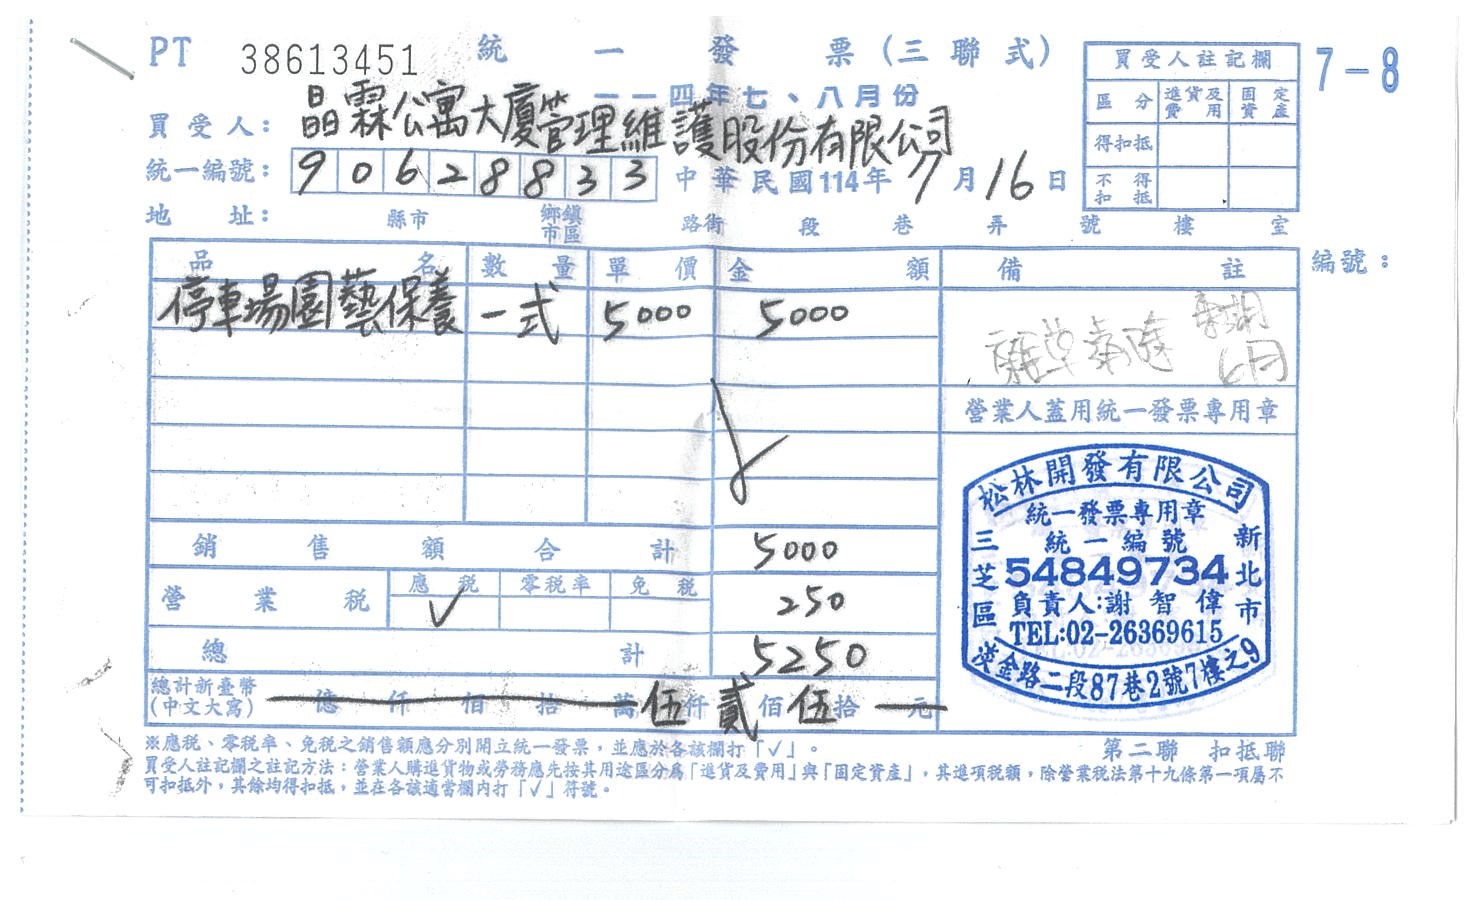 PT 38613451 統一發票(三聯式)
一一四年七、八月份
7-8
買受人註記欄
區分 進貨及費用 固定資產
得扣抵
不得扣抵
買受人: 晶霖公寓大廈管理維護股份有限公司
統一編號: 90628833 中華民國114年7月16日
地址: 縣市 鄉鎮市區 路街 段 巷 弄 號 樓 室
品名 數量 單價 金額 備註 編號:
停車場園藝保養 一式 5000 5000
6月
營業人蓋用統一發票專用章
銷售額合計 5000
營業稅 應稅 零稅率 免稅
✓ 250
總計 5250
總計新臺幣(中文大寫) 億 仟 佰 拾 萬 伍仟 貳佰 伍拾 元
松林開發有限公司
統一發票專用章
統一編號
54849734
負責人:謝智偉
TEL:02-26369615
新北市三芝區
淡金路二段87巷2號7樓之9
※應稅、零稅率、免稅之銷售額應分別開立統一發票,並應於各該欄打「✓」。
第二聯 扣抵聯
買受人註記欄之註記方法:營業人購進貨物或勞務應先按其用途區分為「進貨及費用」與「固定資產」,其進項稅額,除營業稅法第十九條第一項屬不
可扣抵外,其餘均得扣抵,並在各該適當欄內打「✓」符號。